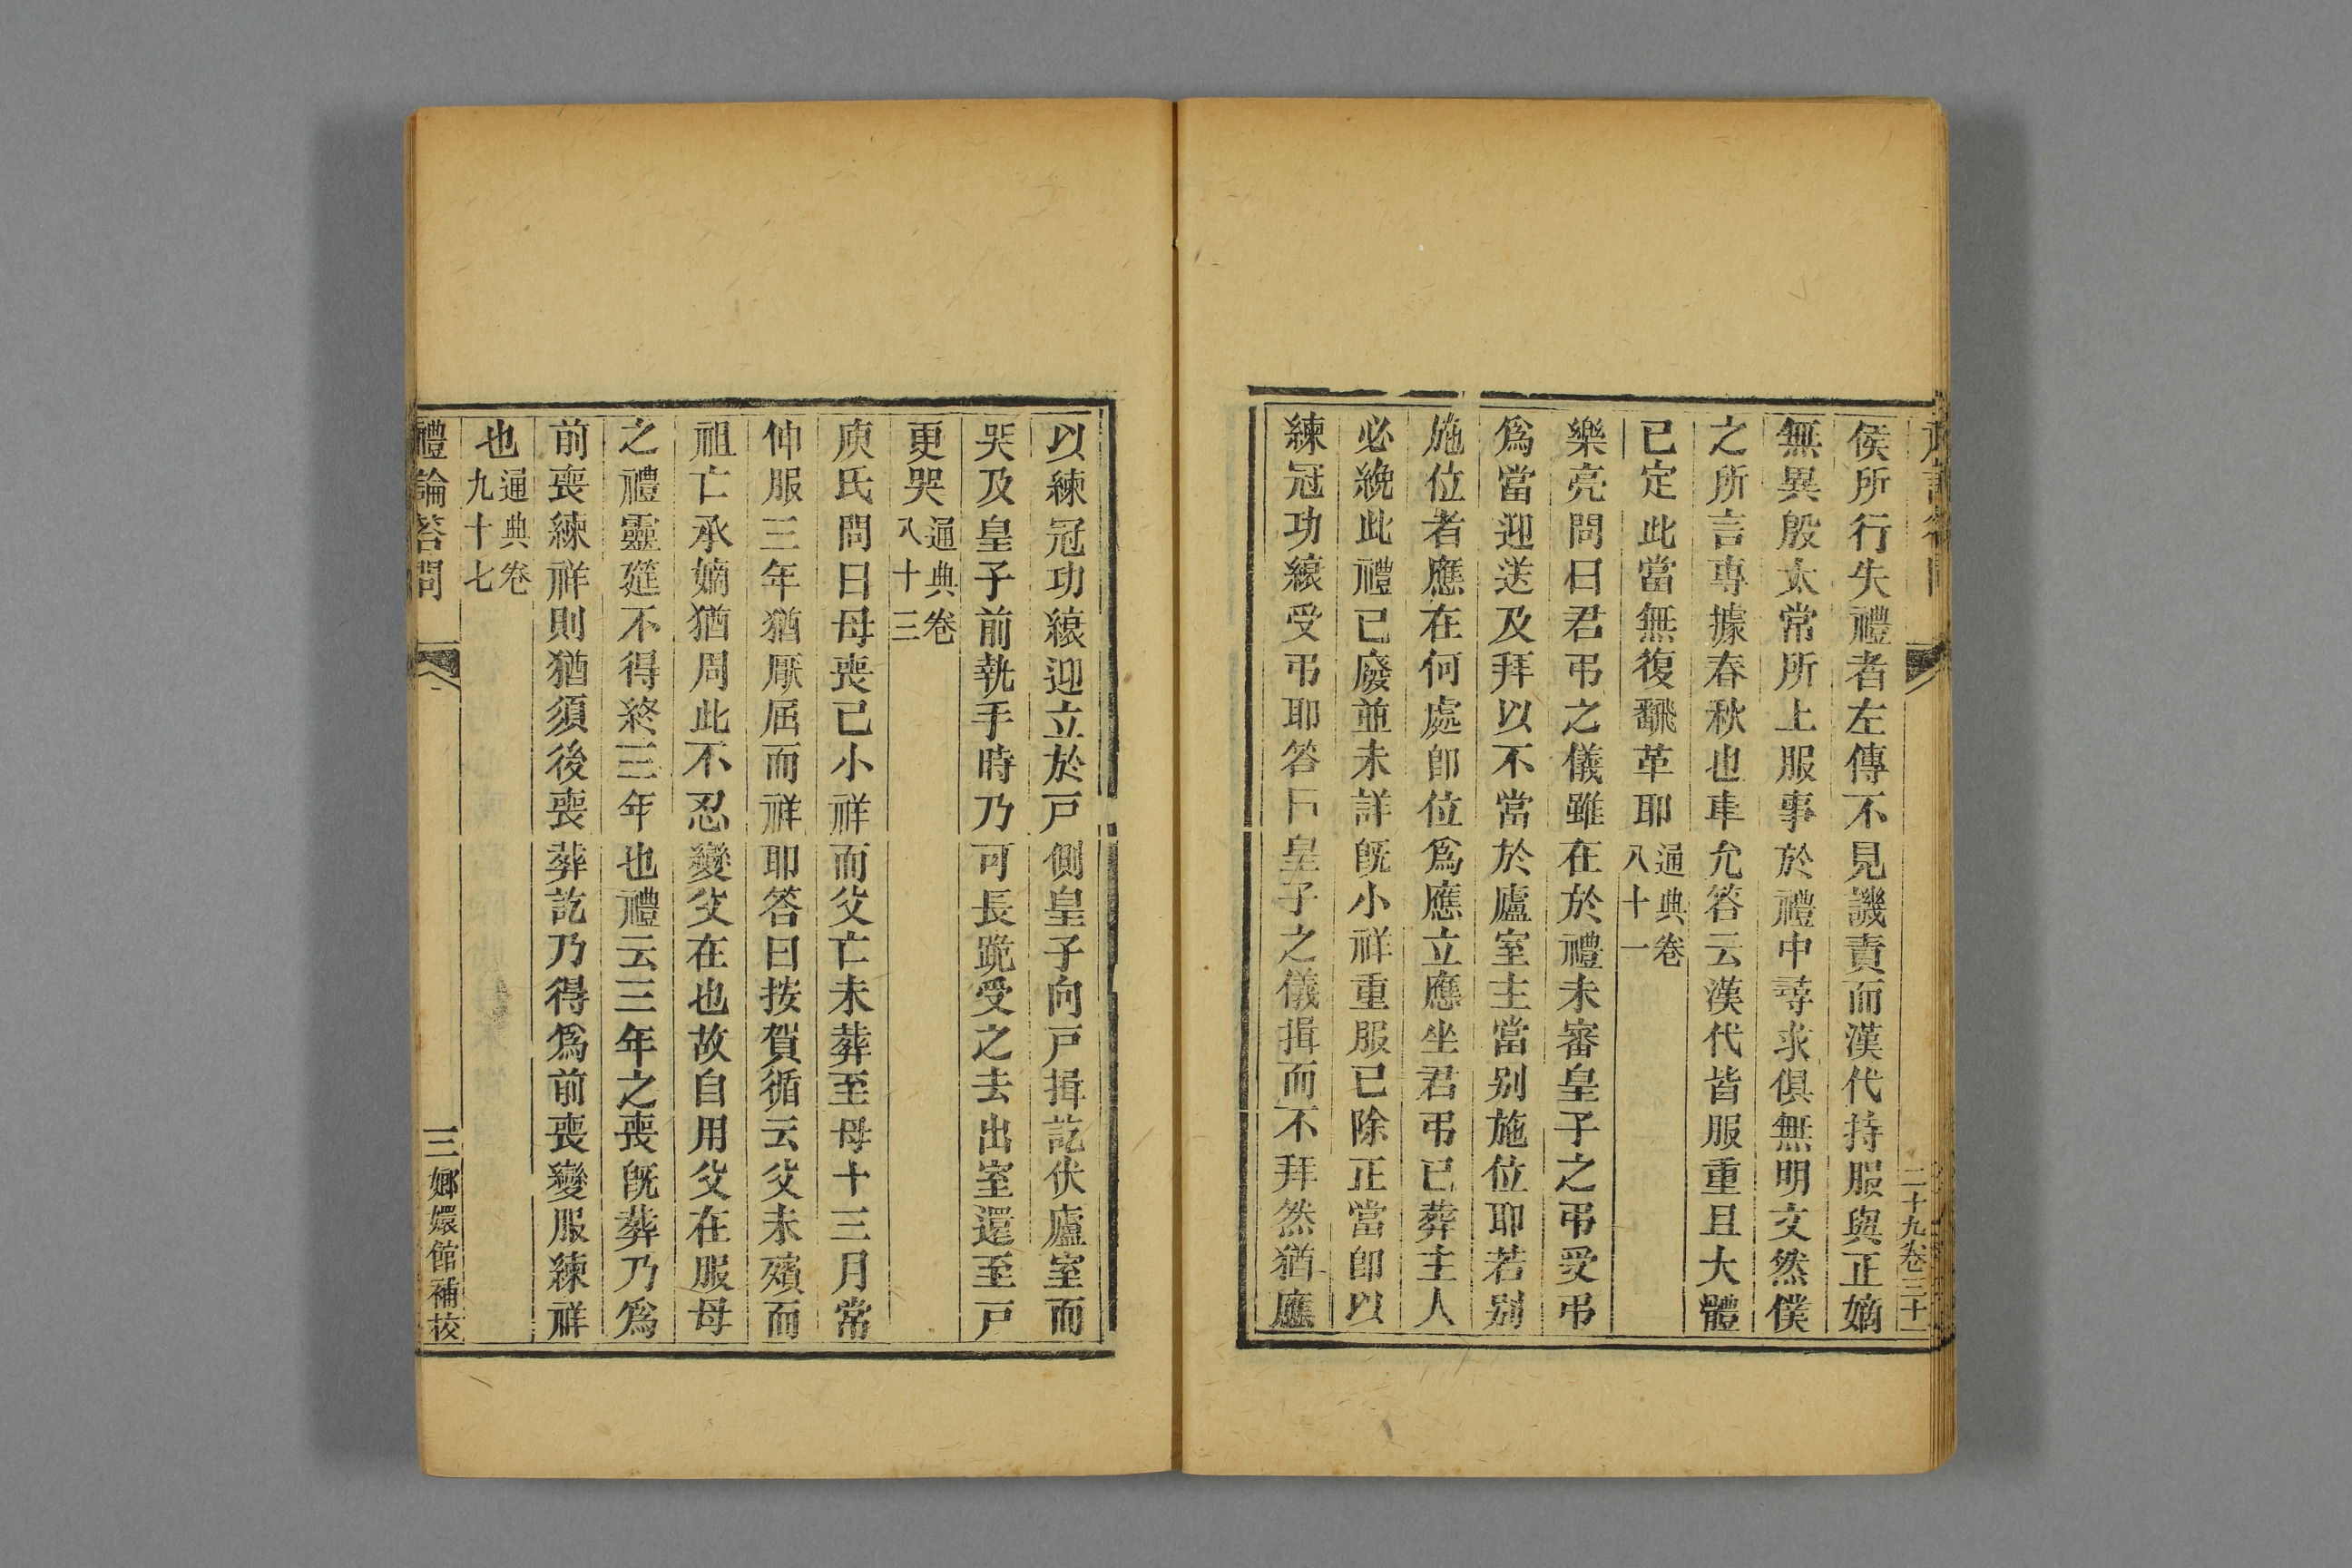 二十九卷三十一
侯所行失禮者左傳不見譏責而漢代持服與正嫡
無異殷太常所上服事於禮中尋求俱無明文然僕
之所言專據春秋也車允答云漢代皆服重且大體
已定此當無復飜革耶通典卷八十一
樂亮問曰君弔之儀雖在於禮未審皇子之弔受弔
爲當迎送及拜以不當於廬室主當别施位耶若别
施位者應在何處卽位爲應立應坐君弔已葬主人
必絻此禮已廢並未詳旣小祥重服已除正當卽以
練冠功縗受弔耶答曰皇子之儀揖而不拜然猶應
以練冠功縗迎立於戸側皇子向戸揖訖伏廬室而
哭及皇子前執手時乃可長跪受之去出室還至戸
更哭通典卷八十三
庾氏問曰母喪已小祥而父亡未葬至母十三月當
伸服三年猶厭屈而祥耶答曰按賀循云父未殯而
祖亡承嫡猶周此不忍變父在也故自用父在服母
之禮靈筵不得終三年也禮云三年之喪旣葬乃爲
前喪練祥則猶須後喪葬訖乃得爲前喪變服練祥
也通典卷九十七
禮論答問
三
嫏嬛館補校